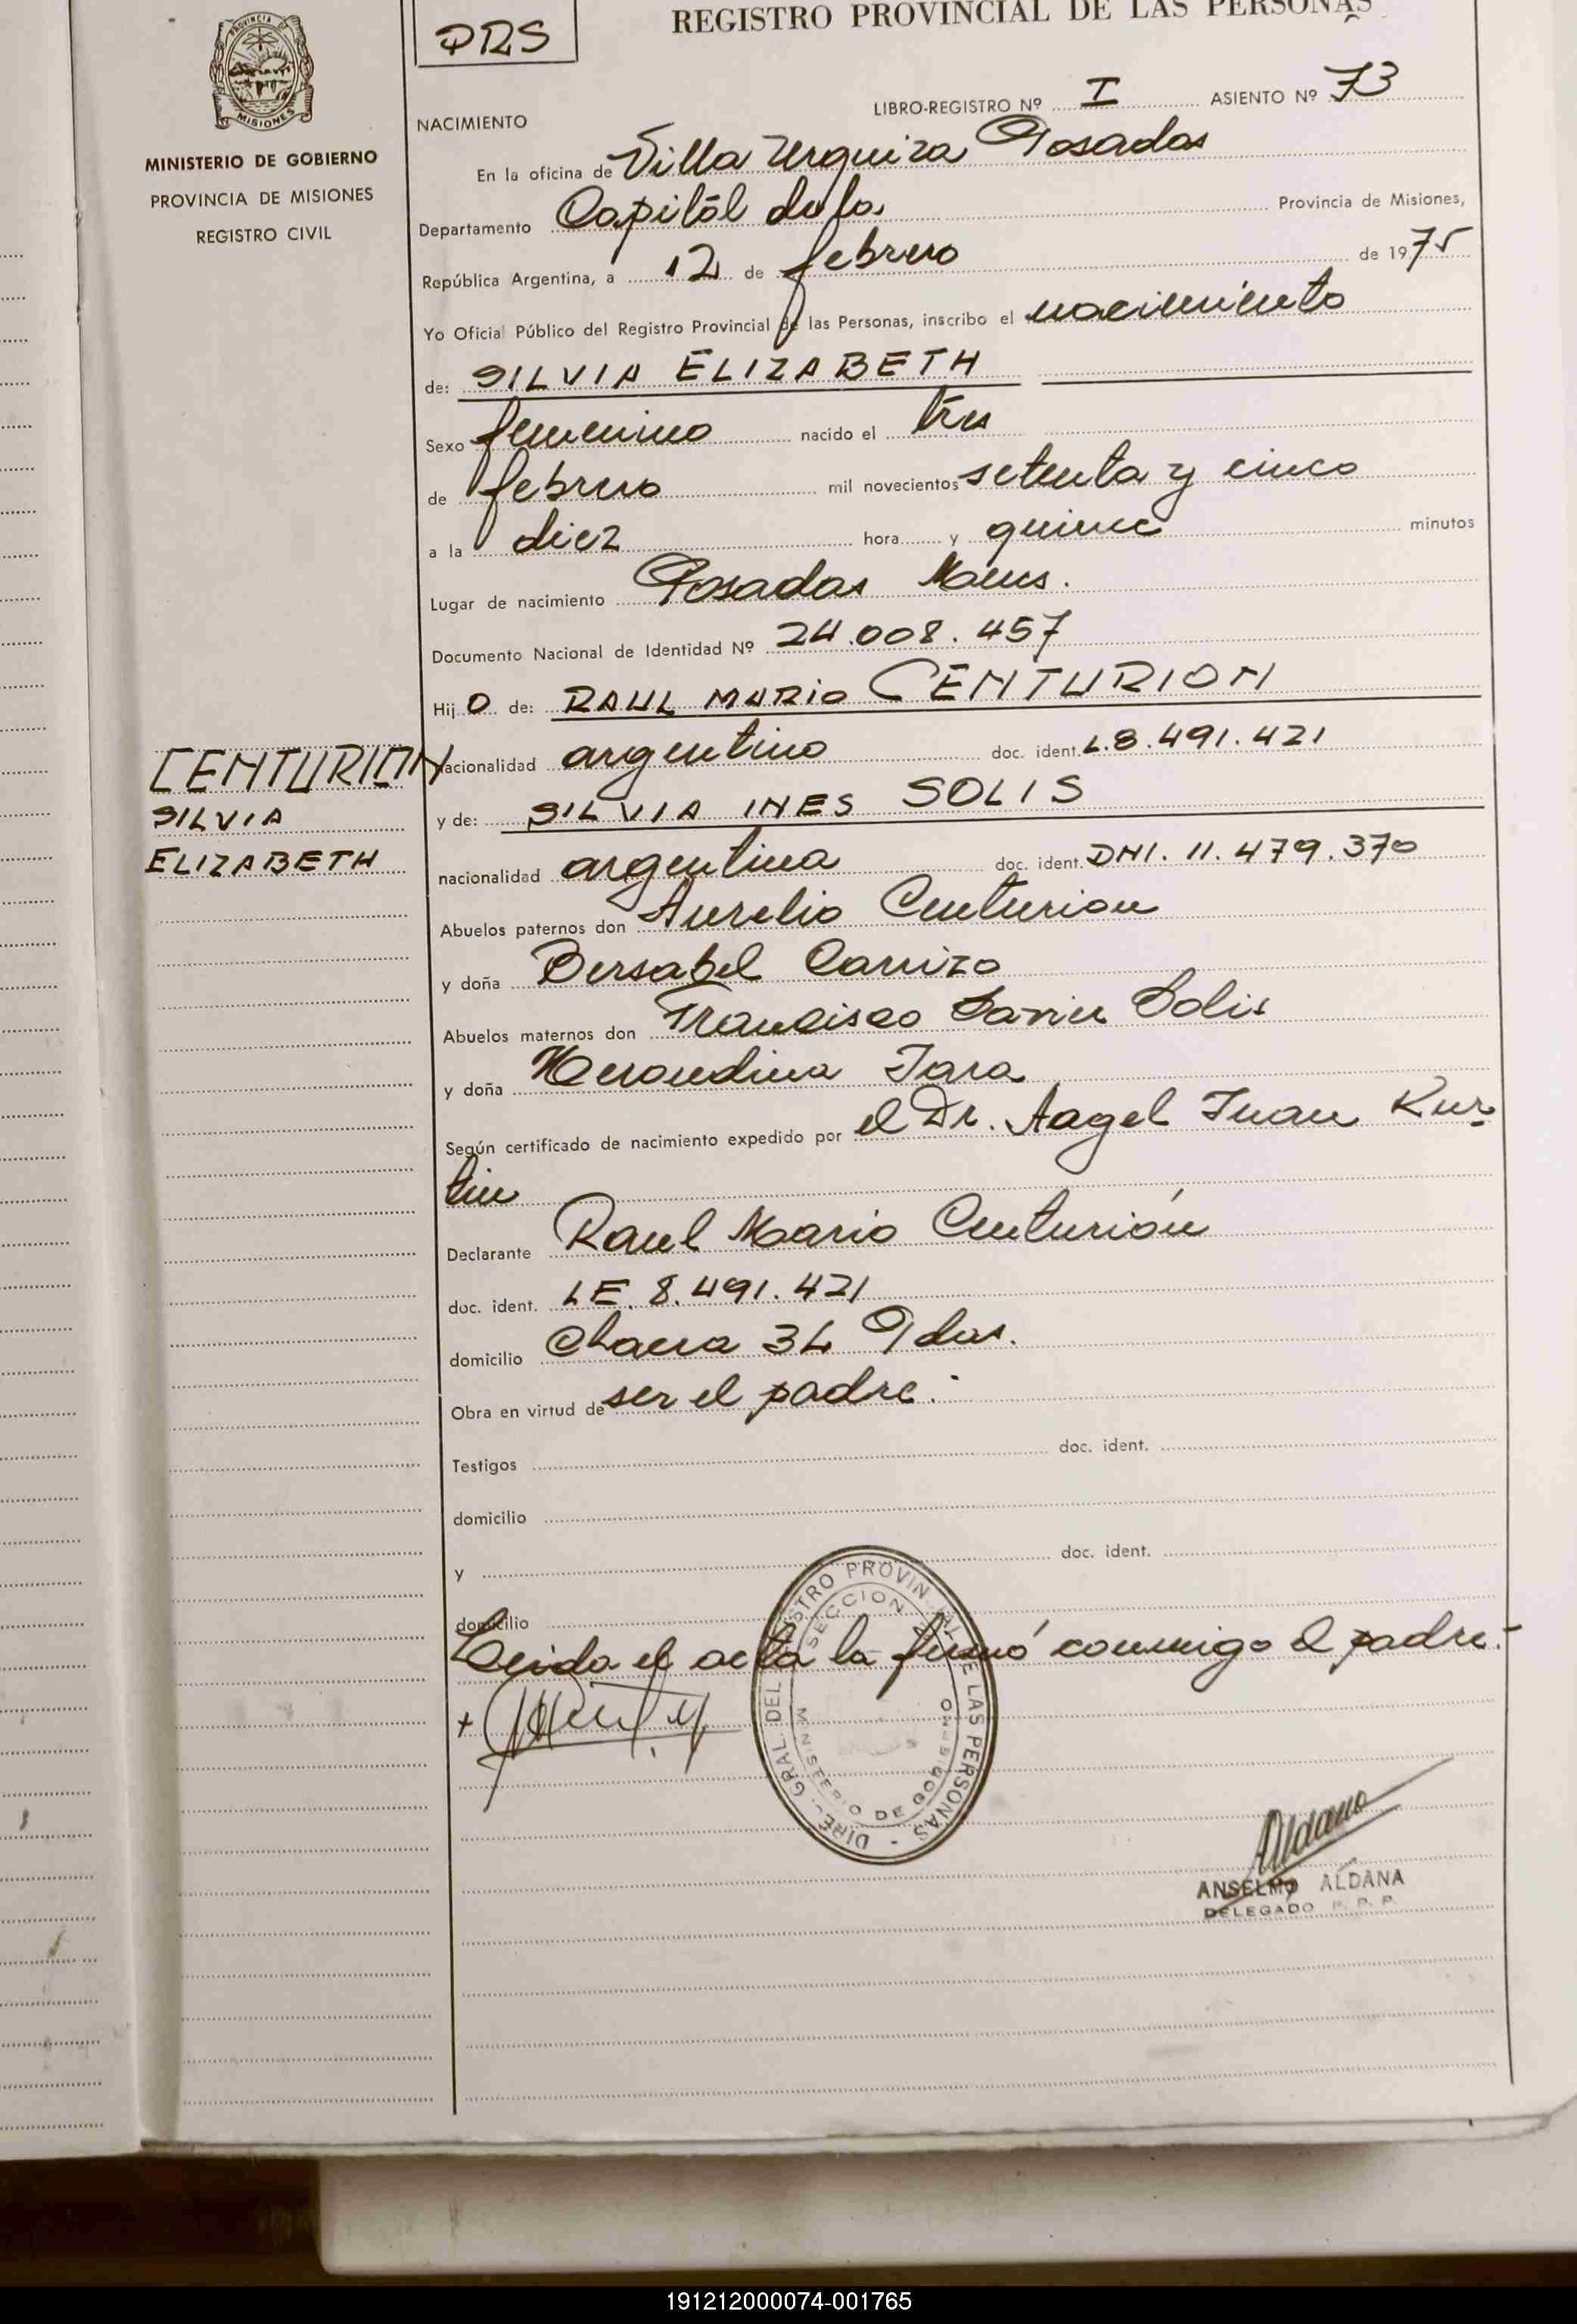 DRS
REGISTRO PROVINCIAL DE LAS PERSONAS
PROVINCIA DE
MISIONES
MINISTERIO DE GOBIERNO
PROVINCIA DE MISIONES
REGISTRO CIVIL
LIBRO-REGISTRO Nº I ASIENTO Nº 73
NACIMIENTO
En la oficina de Villa Urquiza Posadas
Departamento Capitál de la Provincia de Misiones,
República Argentina, a 12 de febrero de 1975
Yo Oficial Público del Registro Provincial de las Personas, inscribo el nacimiento
de: SILVIA ELIZABETH
Sexo femenino nacido el tres
de febrero mil novecientos setenta y cinco
a la diez hora y quince minutos
Lugar de nacimiento Posadas
Documento Nacional de Identidad Nº 24.008.457
Hij O de: RAUL MARIO CENTURION
nacionalidad argentino doc. ident. L.8.491.421
CENTURION
SILVIA
ELIZABETH
y de: SILVIA INES SOLIS
nacionalidad argentina doc. ident. DNI. 11.479.370
Abuelos paternos don Aurelio Centurion
y doña Bersabel Carrizo
Abuelos maternos don Francisco Javier Solis
y doña Jara
Según certificado de nacimiento expedido por el Dr. Angel Juan Kur-
tin
Declarante Raul Mario Centurión
doc. ident. LE. 8.491.421
domicilio Chacra 34 Pdas.
Obra en virtud de ser el padre.-
Testigos doc. ident.
domicilio
y doc. ident.
domicilio
Leida el acta la firmó conmigo el padre.-
DIREC. GRAL. DEL REGISTRO PROVINCIAL DE LAS PERSONAS -
SECCION
MINISTERIO DE GOBIERNO
Aldana
ANSELMO ALDANA
DELEGADO R. P. P.
191212000074-001765